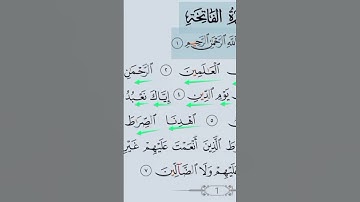 ةُ الفَاتِحَةِ
ٱللَّهِ ٱلرَّحْمَٰنِ ٱلرَّحِيمِ ١
ٱلْعَٰلَمِينَ ٢ ٱلرَّحْمَٰنِ
يَوْمِ ٱلدِّينِ ٤ إِيَّاكَ نَعْبُدُ
٥ ٱهْدِنَا ٱلصِّرَٰطَ
رَٰطَ ٱلَّذِينَ أَنْعَمْتَ عَلَيْهِمْ غَيْرِ
عَلَيْهِمْ وَلَا ٱلضَّآلِّينَ ٧
1